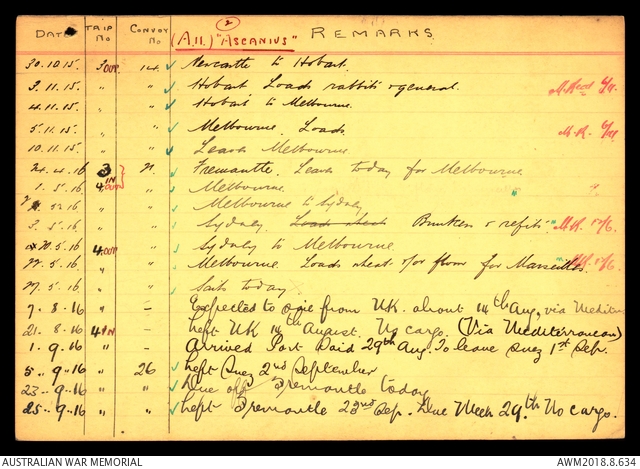 DATE TRIP No CONVOY No (A.11.) "ASCANIUS" 2 REMARKS
30.10.15. 3 OUT 14 Newcastle to Hobart.
3.11.15. " " Hobart. Loads rabbits & general.
4.11.15. " " Hobart to Melbourne.
5.11.15. " " Melbourne. Loads.
10.11.15. " " Leaves Melbourne
24.4.16 3 IN 21. Fremantle. Leaves today for Melbourne.
1.5.16 4 OUT " Melbourne.
" " Melbourne to Sydney
3.5.16 " " Sydney. Loads wheat Bunkers & refits.
20.5.16 4 OUT " Sydney to Melbourne.
22.5.16 " " Melbourne. Loads wheat &/or flour for Marseilles.
27.5.16 " " Sails today.
7.8.16 " — Expected to from UK. about 14th Aug, via
21.8.16 4 IN — Left UK 14th August. No cargo. (Via Mediterranean)
1.9.16 " — Arrived Port Said 29th Aug. To leave Suez 1st Sep.
5.9.16 " 26 Left Suez 2nd September
23.9.16 " " Due off Fremantle today
25.9.16 " Left Fremantle 23rd Sep. Due Melb 29th No cargo.
AUSTRALIAN WAR MEMORIAL AWM2018.8.634